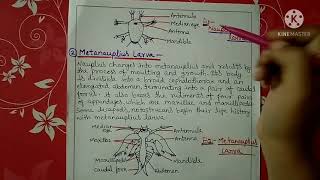 Antennule
Median eye
Antenna
Mandible
Fig:- Nauplius
KINEMASTER
② Metanauplius Larva:-
Nauplius changes into metanauplius and results by
the process of moulting and growth. Its body
is divisible into a broad cephalothorax and an
elongated abdomen, terminating into a pair of caudal
forks. It also bears the rudiments of four pairs
of appendages, which are maxillae and maxillipedes.
Some decapods, nostabacil begin their life history
with metanauplius larva.
Median eye
Antennule
Antenna
Maxillae
Maxillipeds
Mandible
Caudal fork
Abdomen
Fig:- Metanauplius
Larva